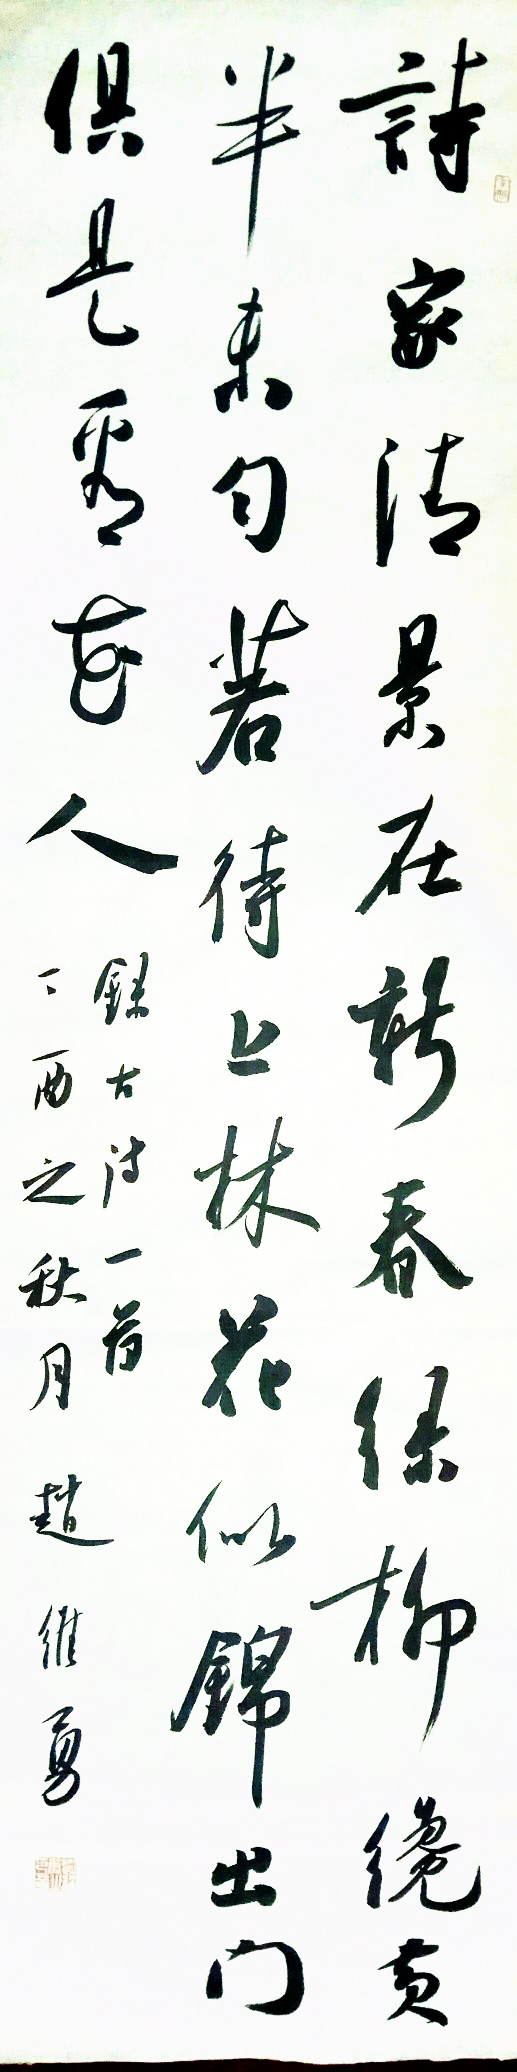 詩家清景在新春綠柳纔黃
半未勻若待上林花似錦出門
俱是看花人
錄古詩一首
丁酉之秋月 趙維勇